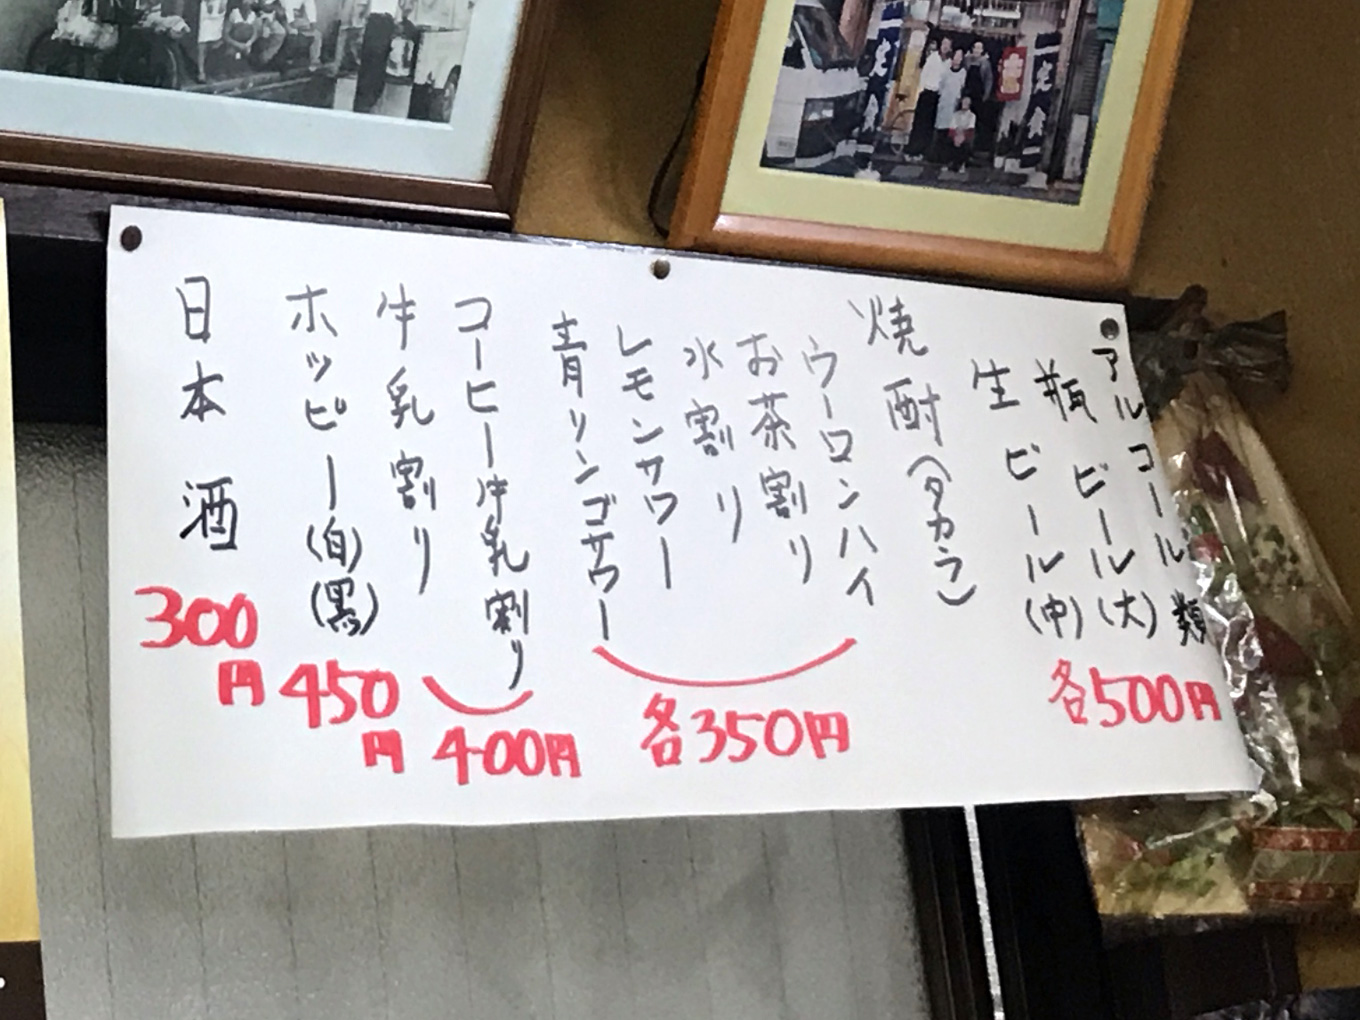 アルコール類
瓶ビール(大)
生ビール(中)
各500円
焼酎(タカラ)
ウーロンハイ
お茶割り
水割り
レモンサワー
青リンゴサワー
各350円
コーヒー牛乳割り
牛乳割り
400円
ホッピー(白)(黒)
450円
日本酒
300円
定食